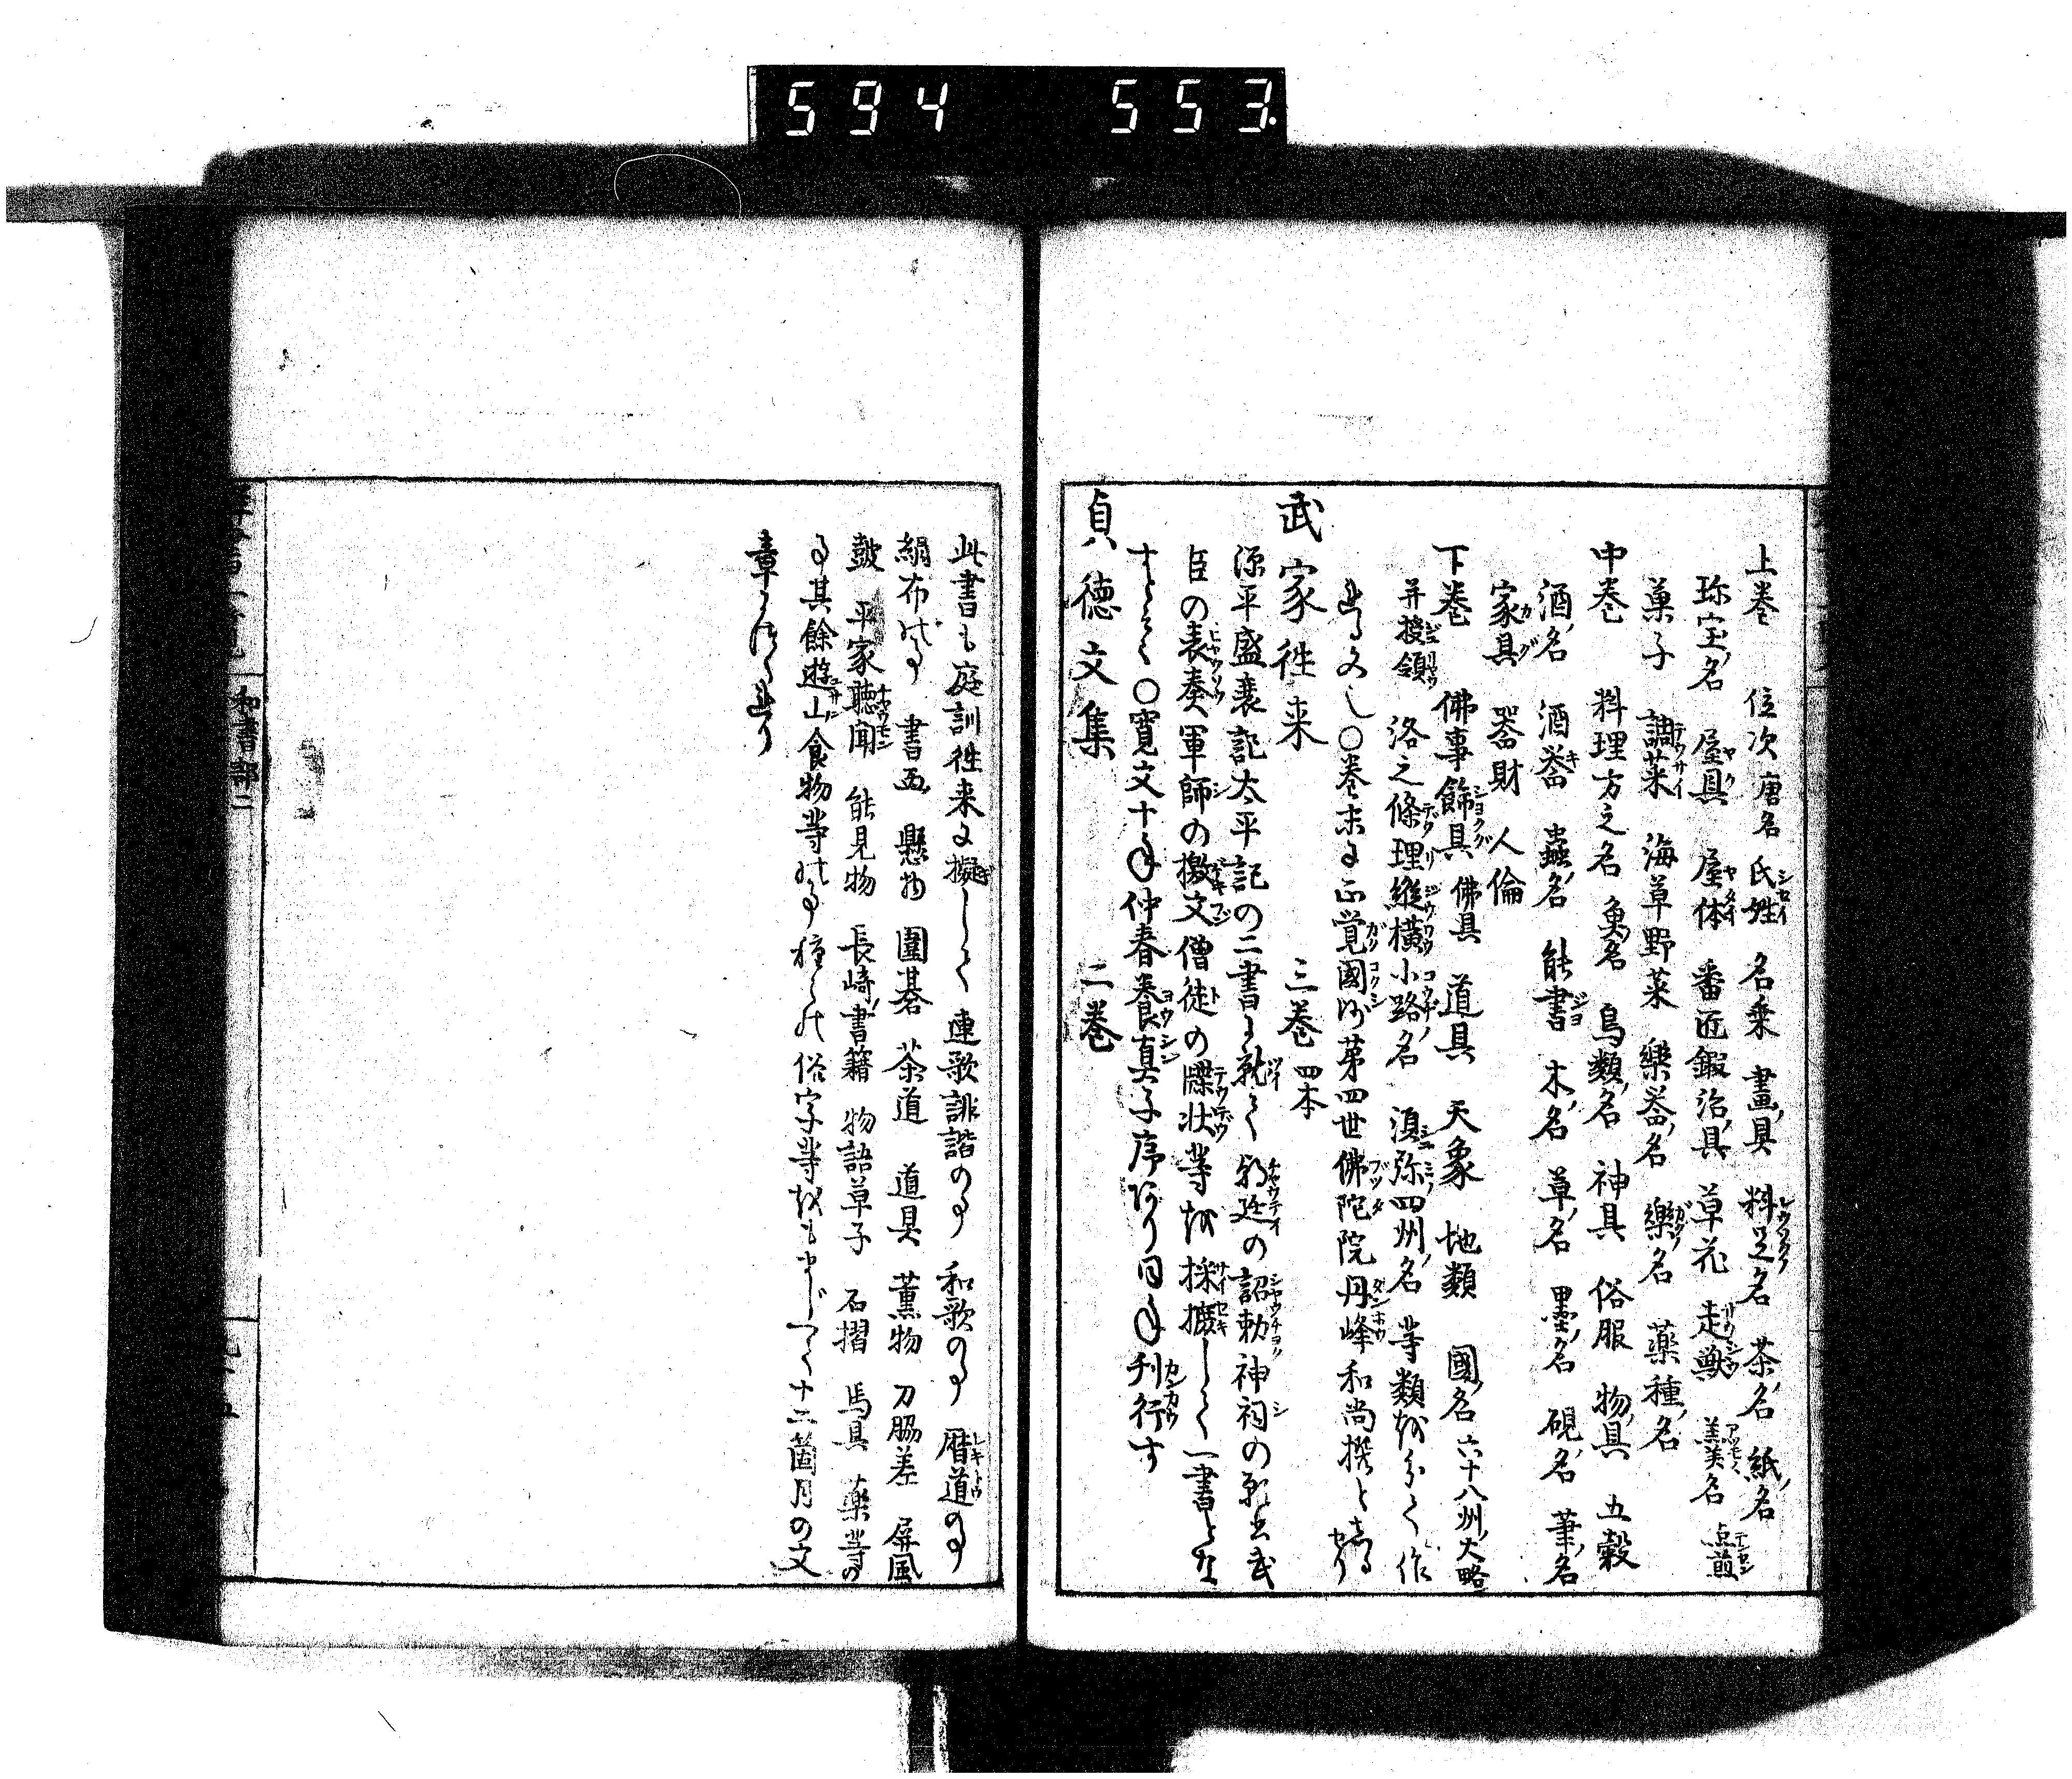 594 553.
上巻 位次 唐名 氏姓 名乗 畫具 料足名 茶名 紙名
珎宝名 屋具 屋体 番匠鍜冶具 草花 走獣 羹名 点煎
菓子 調菜 海草野菜 樂器名 樂名 薬種名
中巻 料理方之名 魚名 鳥類名 神具 俗服 物具 五穀
酒名 酒器 蟲名 能書 木名 草名 墨名 硯名 筆名
家具 器財 人倫
下巻 佛事餝具 佛具 道具 天象 地類 國名 六十八州大略
并授領 洛之條理縦横小路名 湏弥四州名 等類を分て作
○巻末に正覚國師第四世佛陀院丹峰和尚撰と
武家徃来 三巻 四本
源平盛衰記太平記の二書に就て 朝廷の詔勅神祠の 武
臣の表奏軍師の檄文僧徒の牒状等を採摭して一書とな
すとぞ ○寛文十年仲春養真子序あり同年刊行す
貞徳文集 二巻
此書も庭訓徃来に擬して連歌誹諧の事 和歌の事 暦道の事
絹布の事 書画 懸物 圍碁 茶道 道具 薫物 刀脇差 屏風
鼓 平家聴聞 能見物 長崎書籍 物語草子 石摺 馬具 薬等の
事其餘遊山食物等の事種々の俗字等をもまじへて十二箇月の文
章につくれり
和書部二